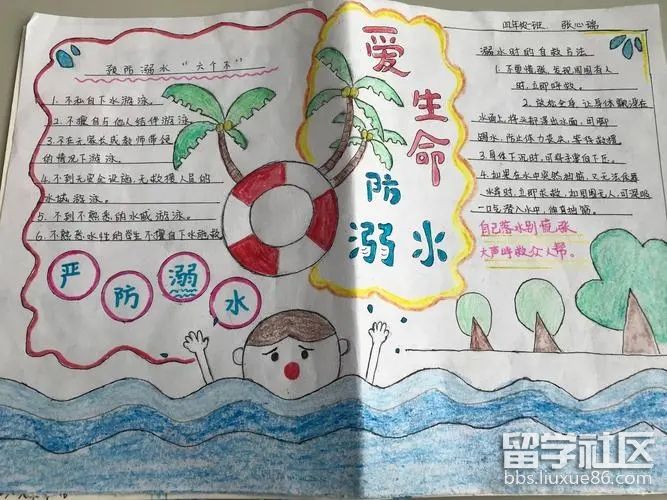 预防溺水“六个不”
1.不私自下水游泳。
2.不擅自与他人结伴游泳。
3.不在无家长或教师带领
的情况下游泳。
4.不到无安全设施、无救援人员的
水域游泳。
5.不到不熟悉的水域游泳。
6.不熟悉水性的学生不擅自下水施救
严防溺水
爱生命
防溺水
张心瑞
溺水时的自救方法
1.不要慌张,发现周围有人
时,立即呼救。
2.放松全身,让身体飘浮在
水面上,将头部浮出水面,用脚
踢水,防止体力丧失,等待救援
3.身体下沉时,可将手掌向下压。
4.如果在水中突然抽筋,又无法靠
水时,立即求救,如周围无人,可深吸
一口气潜入水中,伸直抽筋。
自己落水别慌张
大声呼救众人帮。
留学社区
bbs.liuxue86.com